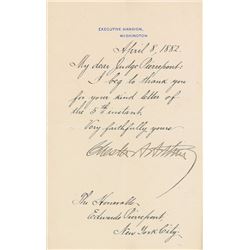 EXECUTIVE MANSION,
WASHINGTON
April 8, 1882.
My dear Judge Pierrepont:
I beg to thank you
for your kind letter of
the 5th instant.
Very faithfully yours
Chester A. Arthur
The Honorable
Edwards Pierrepont,
New York City.